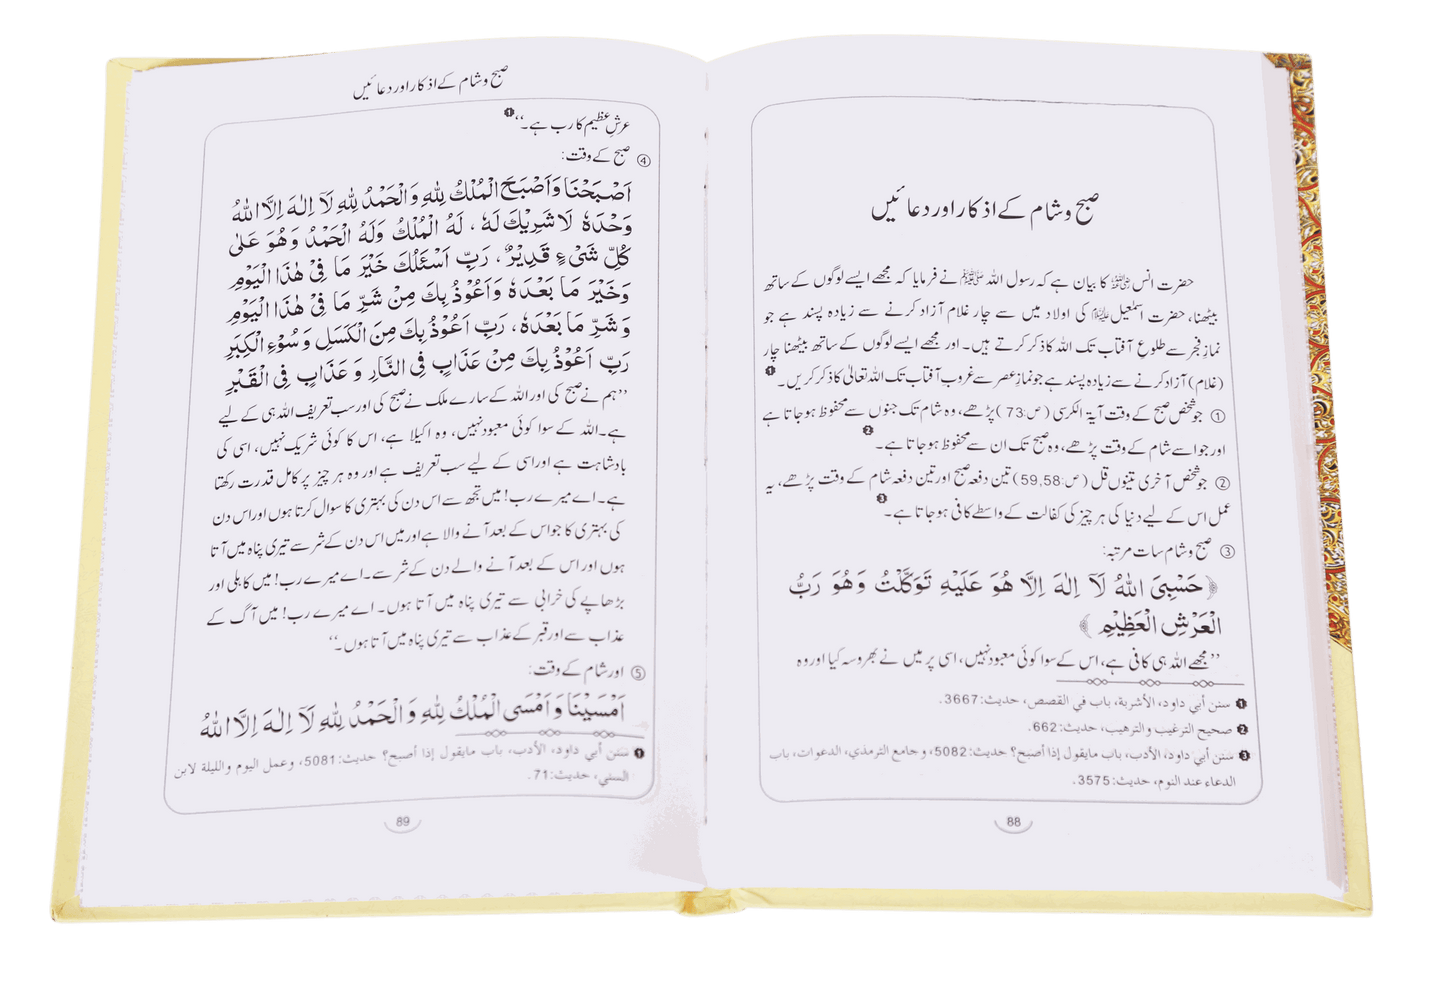 صبح و شام کے اذکار اور دعائیں
حضرت انس رضی اللہ عنہ کا بیان ہے کہ رسول اللہ ﷺ نے فرمایا کہ مجھے ایسے لوگوں کے ساتھ
بیٹھنا، حضرت اسمٰعیل علیہ السلام کی اولاد میں سے چار غلام آزاد کرنے سے زیادہ پسند ہے جو
نمازِ فجر سے طلوع آفتاب تک اللہ کا ذکر کرتے ہیں۔ اور مجھے ایسے لوگوں کے ساتھ بیٹھنا چار
(غلام) آزاد کرنے سے زیادہ پسند ہے جو نمازِ عصر سے غروب آفتاب تک اللہ تعالیٰ کا ذکر کریں۔ ❶
① جو شخص صبح کے وقت آیۃ الکرسی (ص:73) پڑھے، وہ شام تک جنوں سے محفوظ ہو جاتا ہے
اور جو اسے شام کے وقت پڑھے، وہ صبح تک ان سے محفوظ ہو جاتا ہے۔ ❷
② جو شخص آخری تینوں قل (ص:59,58) تین دفعہ صبح اور تین دفعہ شام کے وقت پڑھے، یہ
عمل اس کے لیے دنیا کی ہر چیز کی کفالت کے واسطے کافی ہو جاتا ہے۔ ❸
③ صبح و شام سات مرتبہ:
﴿حَسْبِیَ اللّٰهُ لَآ اِلٰهَ اِلَّا هُوَ عَلَیْهِ تَوَكَّلْتُ وَهُوَ رَبُّ
الْعَرْشِ الْعَظِیْمِ﴾
’’مجھے اللہ ہی کافی ہے، اس کے سوا کوئی معبود نہیں، اسی پر میں نے بھروسہ کیا اور وہ
❶ سنن أبي داود، الأشربة، باب في القصص، حديث:3667.
❷ صحيح الترغيب والترهيب، حديث:662.
❸ سنن أبي داود، الأدب، باب مايقول إذا أصبح؟ حديث:5082، و جامع الترمذي، الدعوات، باب
الدعاء عند النوم، حديث:3575.
88
صبح و شام کے اذکار اور دعائیں
عرشِ عظیم کا رب ہے۔‘‘ ❶
④ صبح کے وقت:
اَصْبَحْنَا وَاَصْبَحَ الْمُلْكُ لِلّٰهِ وَالْحَمْدُ لِلّٰهِ لَآ اِلٰهَ اِلَّا اللّٰهُ
وَحْدَهٗ لَا شَرِیْكَ لَهٗ، لَهُ الْمُلْكُ وَلَهُ الْحَمْدُ وَهُوَ عَلٰی
كُلِّ شَیْءٍ قَدِیْرٌ، رَبِّ اَسْئَلُكَ خَیْرَ مَا فِیْ هٰذَا الْیَوْمِ
وَخَیْرَ مَا بَعْدَهٗ وَاَعُوْذُ بِكَ مِنْ شَرِّ مَا فِیْ هٰذَا الْیَوْمِ
وَ شَرِّ مَا بَعْدَهٗ، رَبِّ اَعُوْذُ بِكَ مِنَ الْكَسَلِ وَ سُوْءِ الْكِبَرِ
رَبِّ اَعُوْذُ بِكَ مِنْ عَذَابٍ فِی النَّارِ وَ عَذَابٍ فِی الْقَبْرِ
’’ہم نے صبح کی اور اللہ کے سارے ملک نے صبح کی اور سب تعریف اللہ ہی کے لیے
ہے۔ اللہ کے سوا کوئی معبود نہیں، وہ اکیلا ہے، اس کا کوئی شریک نہیں، اسی کی
بادشاہت ہے اور اسی کے لیے سب تعریف ہے اور وہ ہر چیز پر کامل قدرت رکھتا
ہے۔ اے میرے رب! میں تجھ سے اس دن کی بہتری کا سوال کرتا ہوں اور اس دن
کی بہتری کا جو اس کے بعد آنے والا ہے اور میں اس دن کے شر سے تیری پناہ میں آتا
ہوں اور اس کے بعد آنے والے دن کے شر سے۔ اے میرے رب! میں کاہلی اور
بڑھاپے کی خرابی سے تیری پناہ میں آتا ہوں۔ اے میرے رب! میں آگ کے
عذاب سے اور قبر کے عذاب سے تیری پناہ میں آتا ہوں۔‘‘
⑤ اور شام کے وقت:
اَمْسَیْنَا وَ اَمْسَی الْمُلْكُ لِلّٰهِ وَ الْحَمْدُ لِلّٰهِ لَآ اِلٰهَ اِلَّا اللّٰهُ
❶ سنن أبي داود، الأدب، باب مايقول إذا أصبح؟ حديث:5081، وعمل اليوم والليلة لابن
السني، حديث:71.
89